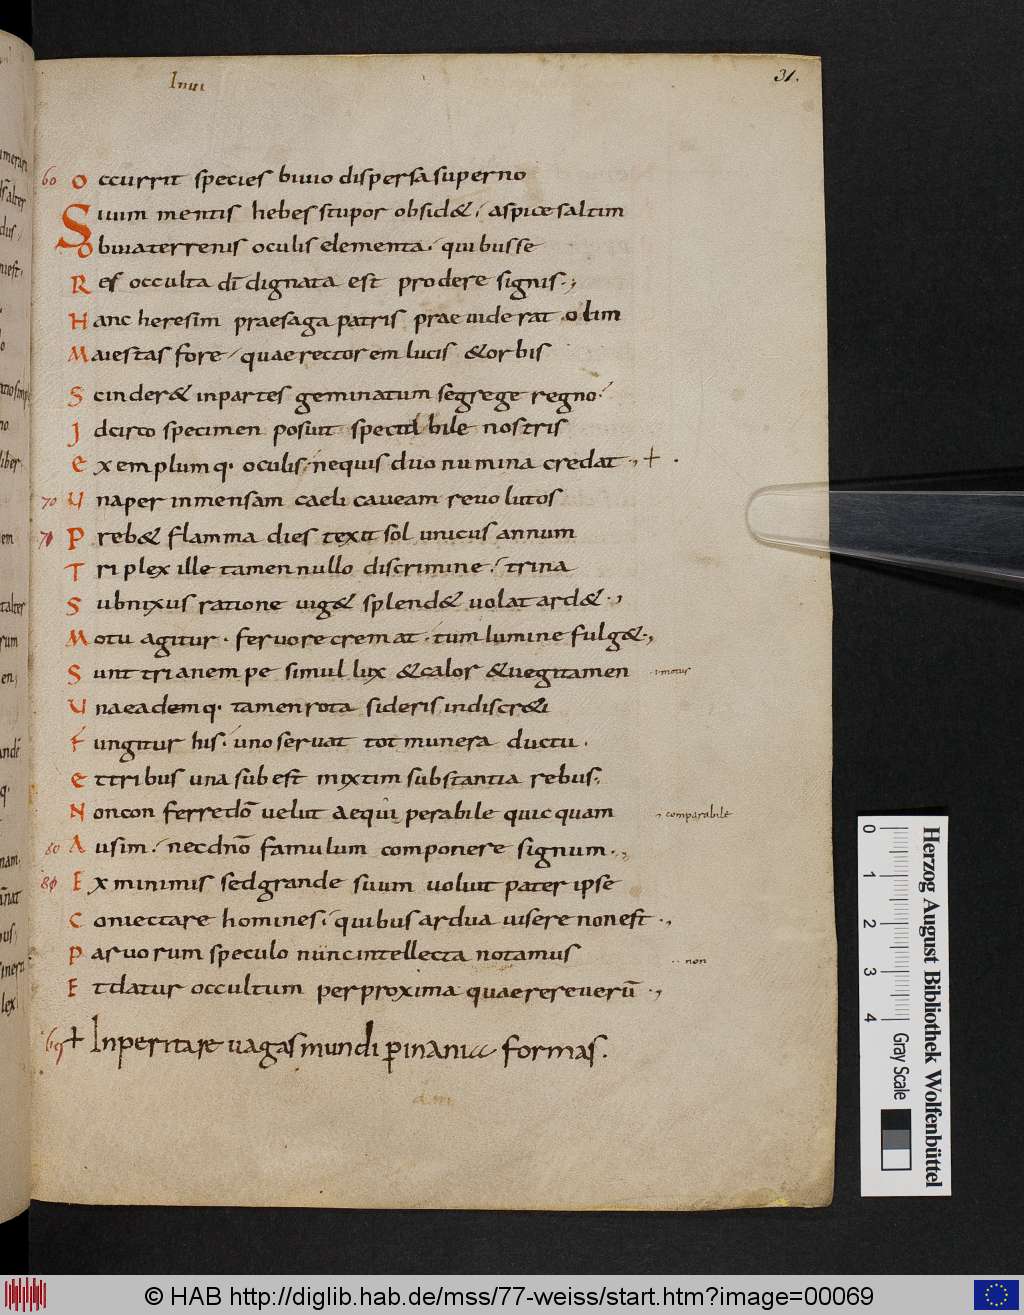 31.
60 Occurrit species biuio dispersa superno
Siuim mentis hebes stupor obsid& aspice saltim
Obuia terrenis oculis elementa. quibus se
Res occulta dī dignata est prodere signis.,
Hanc heresim praesaga patris prae uiderat olim
Maiestas fore, quae rectorem lucis &orbis
Scinder& inpartes geminatum segrege regno.
Idcirco specimen posuit spectabile nostris
Exemplumq. oculis, nequis duo numina credat., + .
70 Unaper inmensam caeli caueam reuolutos
71 Preb& flamma dies texit sol unicus annum
Triplex ille tamen nullo discrimine. trina
Subnixus ratione uig& splend& uolat ard&.,
Motu agitur. feruore cremat. tum lumine fulg&.,
Sunt tria nempe simul lux &calor &uegitamen
Unaeademq. tamen rota sideris indiscr&i
Fungitur his. uno seruat tot munera ductu.
Ettribus una sub est mixtim substantia rebus.
Noncon ferredō uelut aequi perabile quicquam
comparabile
80 Ausim. necdnō famulum componere signum.,
Exminimis sedgrande suum uoluit pater ipse
Coniectare homines. quibus ardua uisere non est.,
Paruorum speculo nunc intellecta notamus
non
Etdatur occultum perproxima quaerere uerū.,
69 + Inperitare uagas mundi p inania formas.
0 1 2 3 4
Gray Scale
Herzog August Bibliothek Wolfenbüttel
© HAB http://diglib.hab.de/mss/77-weiss/start.htm?image=00069